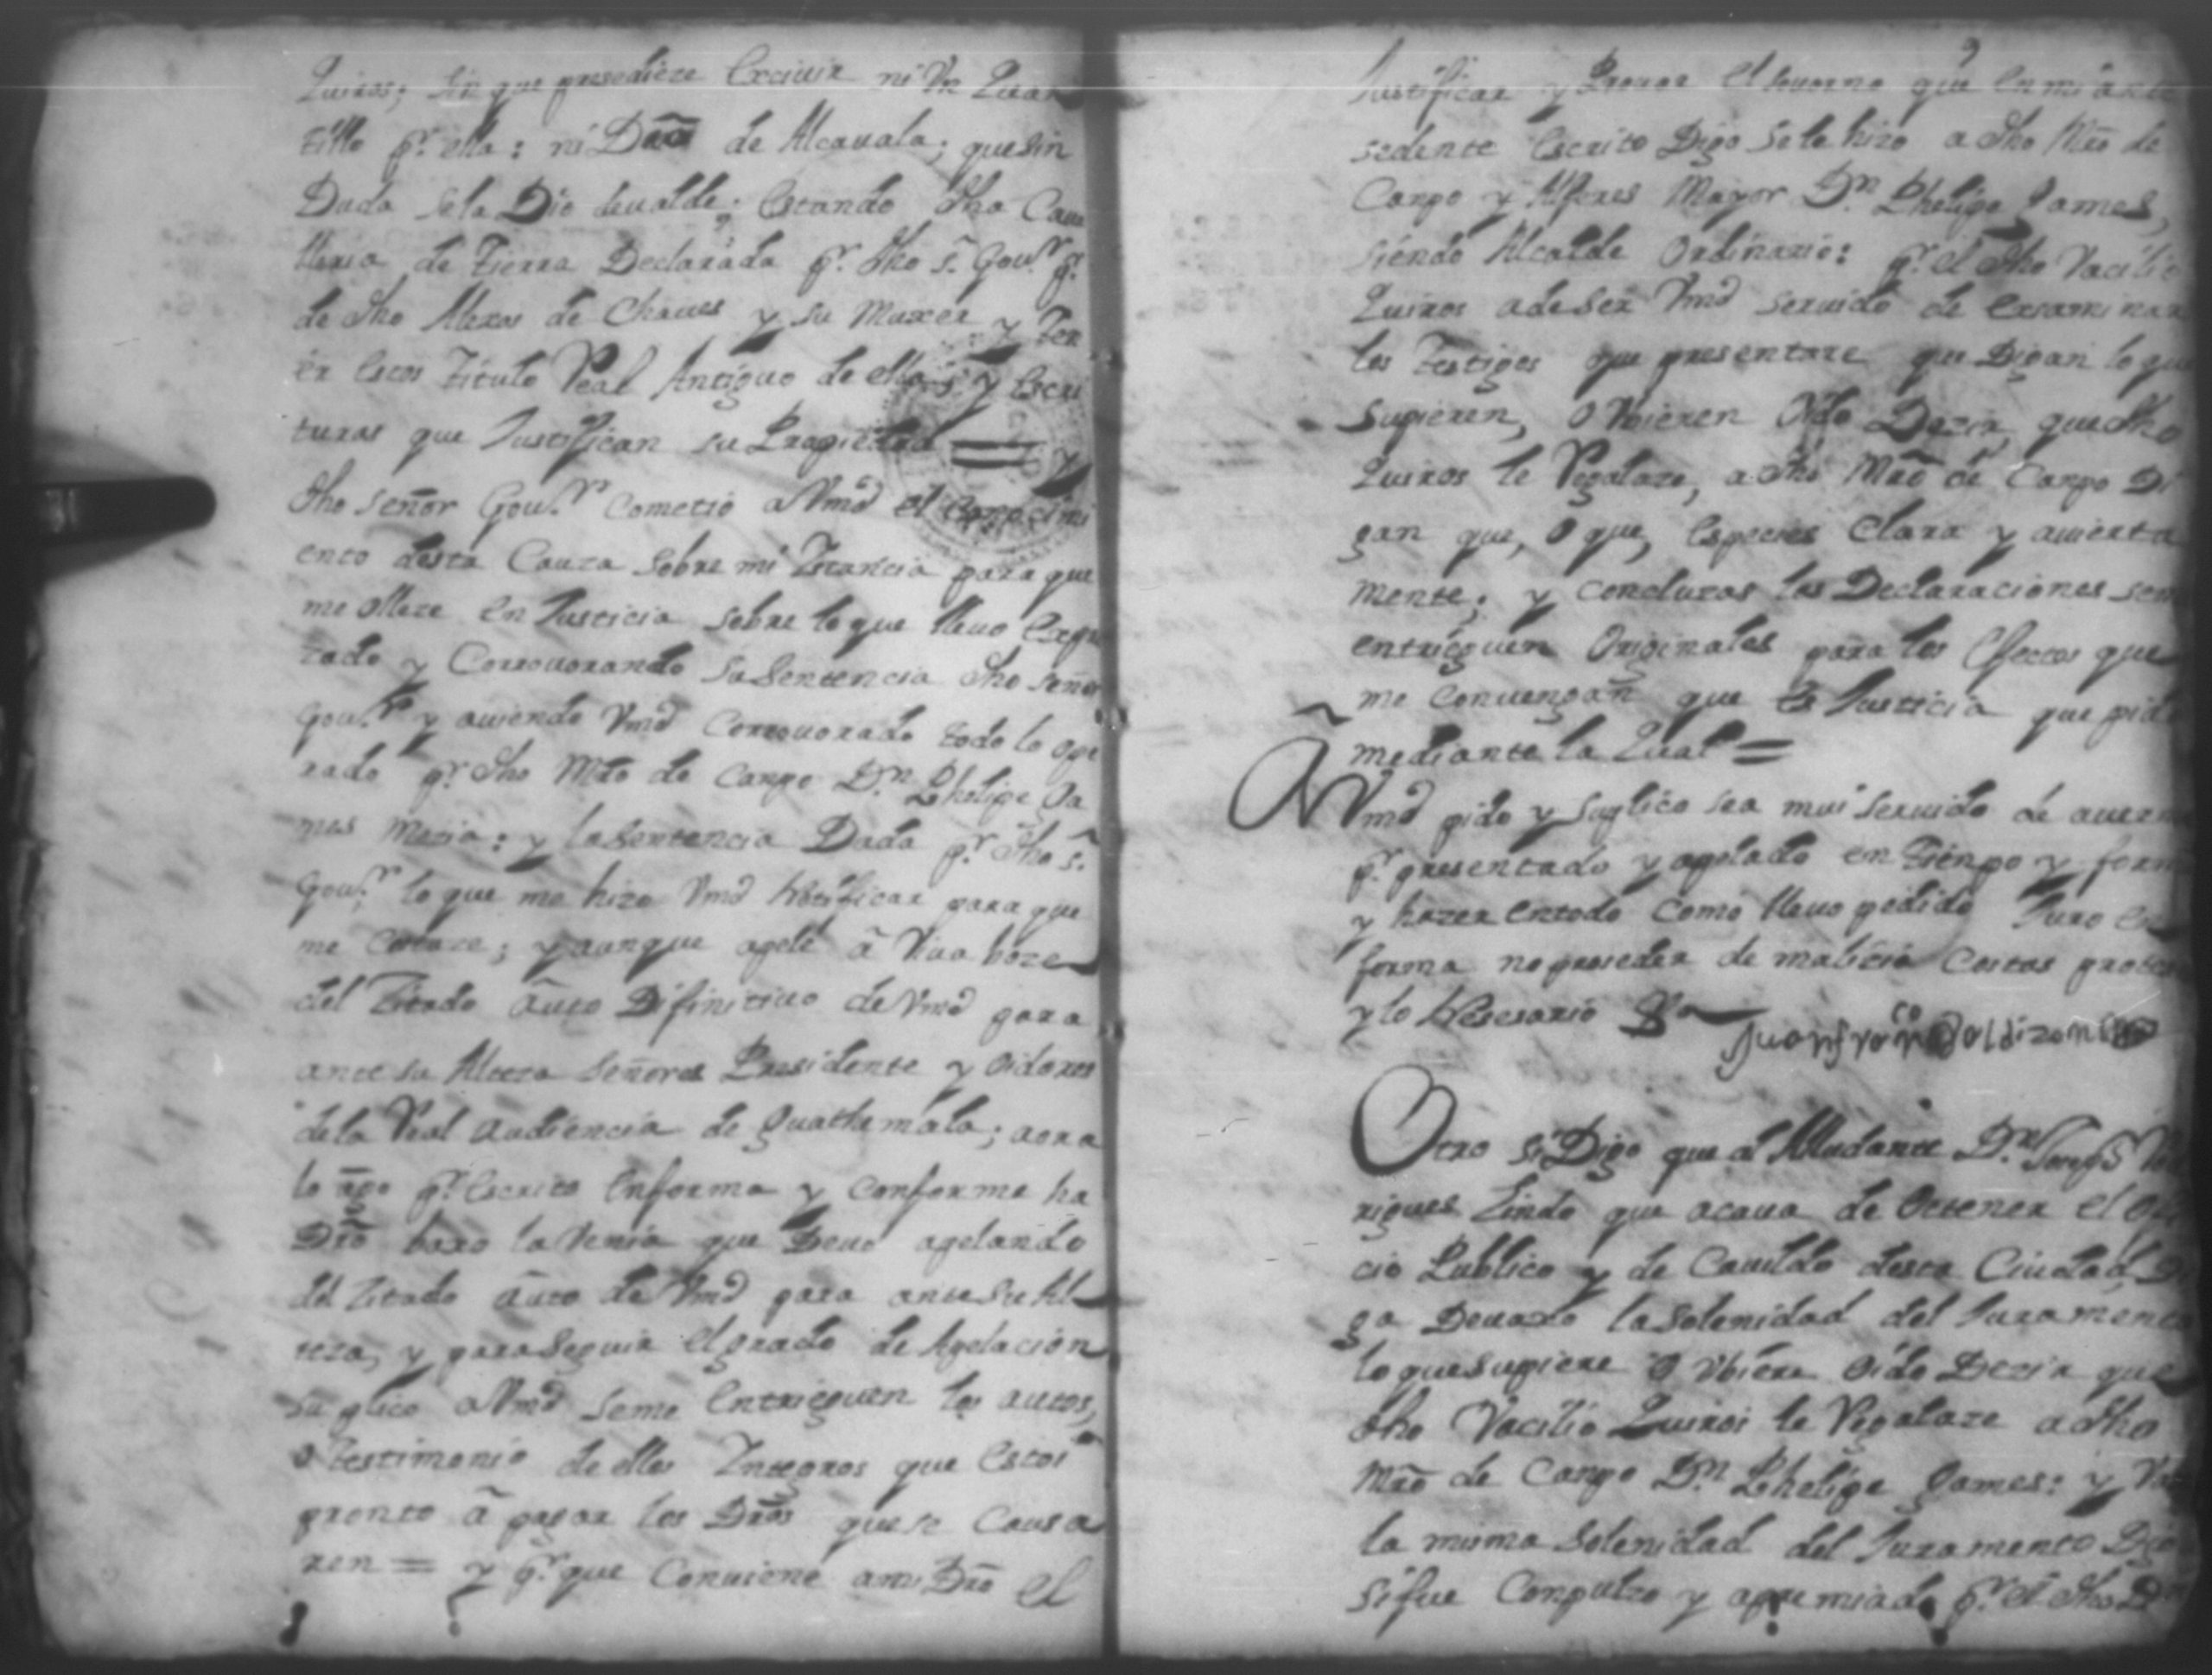 Quiros; sin que presediere Exciuir ni Vn Quar
tillo pr. ella: ni Dro de Alcauala; que sin
Duda se la Dio deualde; Estando dha Caua
lleria de Tierra Declarada pr. dho sr. Gour. pr.
de dho Alexos de Chaues y su Muxer y Ten
er Estos Titulo Real Antiguo de ellas y Escri
turas que Justifican su Propiedad = y
dho señor Gour. Cometió a Vmd el Conosimi
ento desta Cauza sobre mi Ystancia para que
me ollere En Justicia sobre lo que lleuo
tado y Corrouorando su Sentencia dho señor
Gour. y auiendo Vmd Corrouorado todo lo ope
rado pr. dho Mro de Canpo Dn. Phelipe Ga
mes Mesia: y la Sentencia Dada pr. dho sr.
Gour. lo que me hizo Vmd Notificar para que
me Costare; y aunque apelé â Viua boze
del Zitado âuto Difinitiuo de Vmd para
ante su Alteza Señores Presidente y oidores
de la Real Audiencia de Guathemala; aora
lo ago pr. Escrito Enforma y Conforme ha
Dro baxo la Venia que Deuo apelando
del Zitado âuto de Vmd para ante su Al
teza, y para Seguir El grado de Apelacion
suplico a Vmd seme Entrieguen los autos,
o testimonio de ellos Yntegros que Estoi
pronto â pagar los Dros que se Causa
ren = y pr. que Conuiene ami Dro El
9
Justificar y Prouar El souorno que En mi ante
sedente Escrito Digo se le hizo a dho Mro de
Canpo y Alferes Mayor Dn. Phelipe Games,
siendo Alcalde Ordinario: pr. el dho Vacilio
Quiros a de ser Vmd seruido de Exsaminar
los Testigos que presentare que Digan lo que
Supieren, O Vbieren Oido Dezir, que dho
Quiros le Regalaze, a dho Mro de Canpo Di
gan que, O que, Especies Clara y auierta
mente; y concluzas las Declaraciones seme
entrieguen Originales para los Efectos que
me Conuengan que Es Justicia que pido
mediante la Qual =
A Vmd pido y Suplico sea mui seruido de auerme
pr. presentado y apelado en Tienpo y forma
y hazer Entodo Como lleuo pedido Juro En
forma no proseder de malicia Costas protesto
y lo Nesesario Va
Juan franco de aldizon
Otro si Digo que al Aludante Dn.
rigues Lindo que acaua de Octener el Ofi
cio Publico y de Cauildo desta Ciudad Di
ga Deuaxo la Solenidad del Juramento
lo que Supiere O Vbiere Oido Dezir que
dho Vacilio Quiros le Regalaze a dho
Mro de Canpo Dn. Phelipe Games: y
la misma Solenidad del Juramento Diga
si fue Conpulzo y apremiado pr. el dho Dn